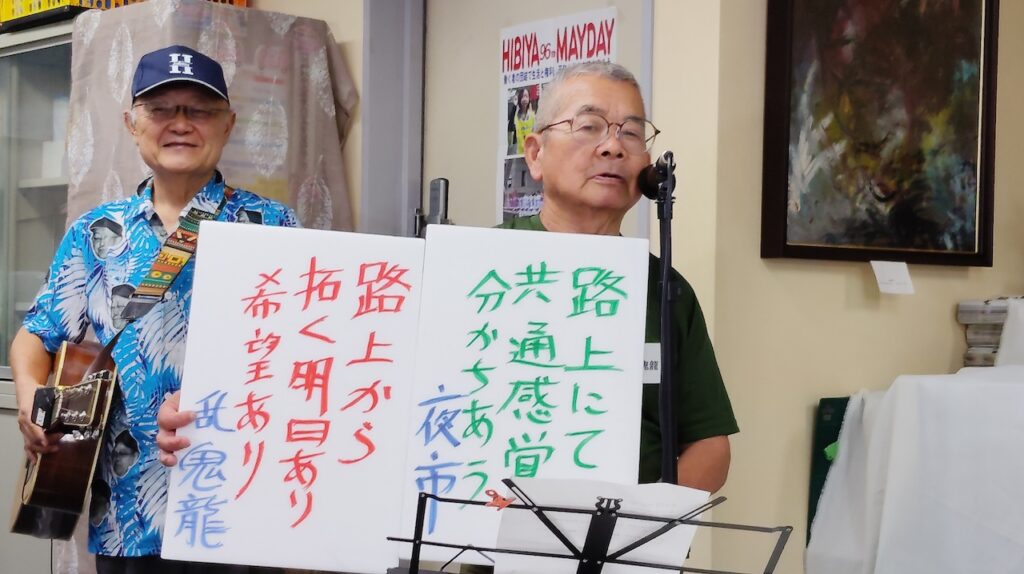 HIBIYA 96th MAYDAY
路上にて
共通感覚
分かちあう
夜市
路上から
拓く明日あり
希望あり
乱鬼龍
H